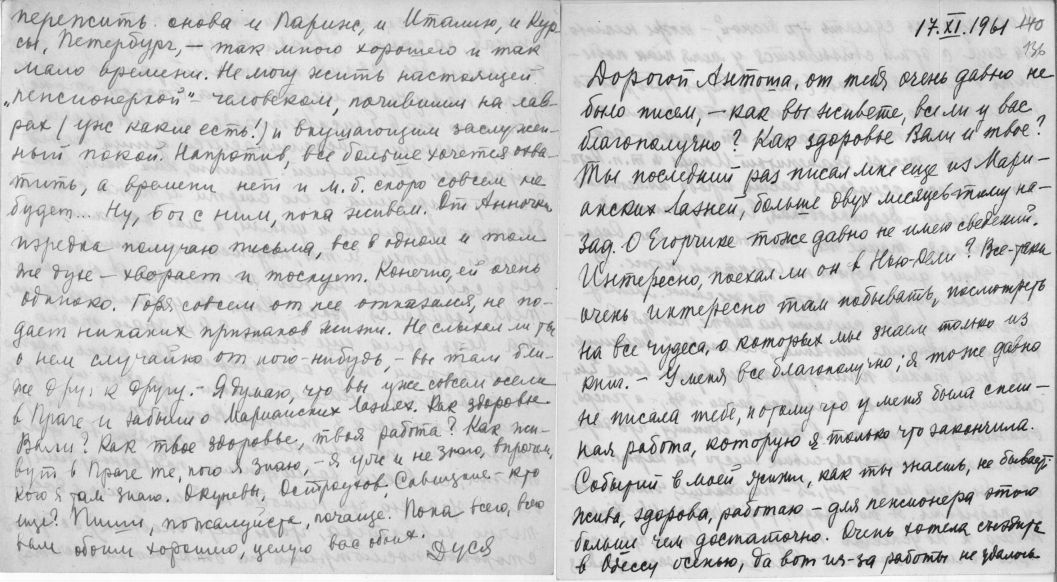 пережить снова и Париж, и Италию, и Кур-
сы, Петербург, — так много хорошего и так
мало времени. Не могу жить настоящей
„пенсионеркой" — человеком, почившим на лав-
рах (уж какие есть!) и вкушающим заслужен-
ный покой. Напротив, все больше хочется охва-
тить, а времени нет и м.б. скоро совсем не
будет... Ну, бог с ним, пока живем. От Анночки
изредка получаю письма, все в одном и том
же духе — хворает и тоскует. Конечно, ей очень
одиноко. Горя совсем от нее отказался, не по-
дает никаких признаков жизни. Не слыхал ли ты
о нем случайно от кого-нибудь, — вы там бли-
же друг к другу. — Я думаю, что вы уже совсем осели
в Праге и забыли о Марианских Лазнях. Как здоровье
Вали? Как твое здоровье, твоя работа? Как жи-
вут в Праге те, кого я знаю, — я уже и не знаю, впрочем,
кого я там знаю. Окуневы, Остроухов, Савицкие — кто
еще? Пиши, пожалуйста, почаще. Пока всего, всего
вам обоим хорошего, целую вас обоих.
Дуся
17.XI.1961
140
136
Дорогой Антоша, от тебя очень давно не
было писем, — как вы живете, все ли у вас
благополучно? Как здоровье Вали и твое?
Ты последний раз писал мне еще из Мари-
анских Лазней, больше двух месяцев тому на-
зад. О Егорчике тоже давно не имею сведений.
Интересно, поехал ли он в Нью-Дели? Все-таки
очень интересно там побывать, посмотреть
на все чудеса, о которых мы знаем только из
книг. — У меня все благополучно; я тоже давно
не писала тебе, потому что у меня была спеш-
ная работа, которую я только что закончила.
Событий в моей жизни, как ты знаешь, не бывает:
жива, здорова, работаю — для пенсионера этого
больше чем достаточно. Очень хотела съездить
в Одессу осенью, да вот из-за работы не удалось